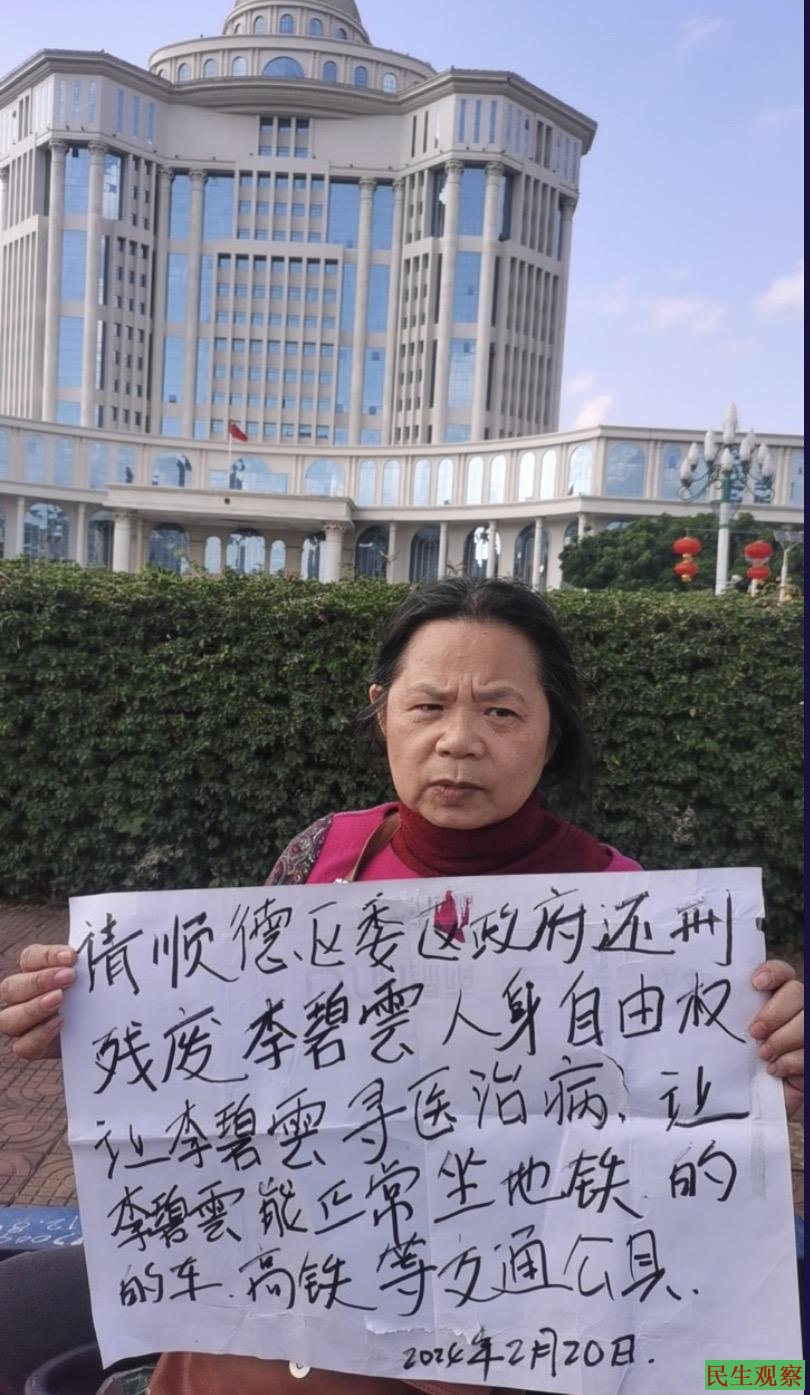 请顺德区委区政府还刑
残废李碧雲人身自由权
让李碧雲寻医治病、让
李碧雲能正常坐地铁.的
的车.高铁等交通公具.
2024年2月20日.
民生观察